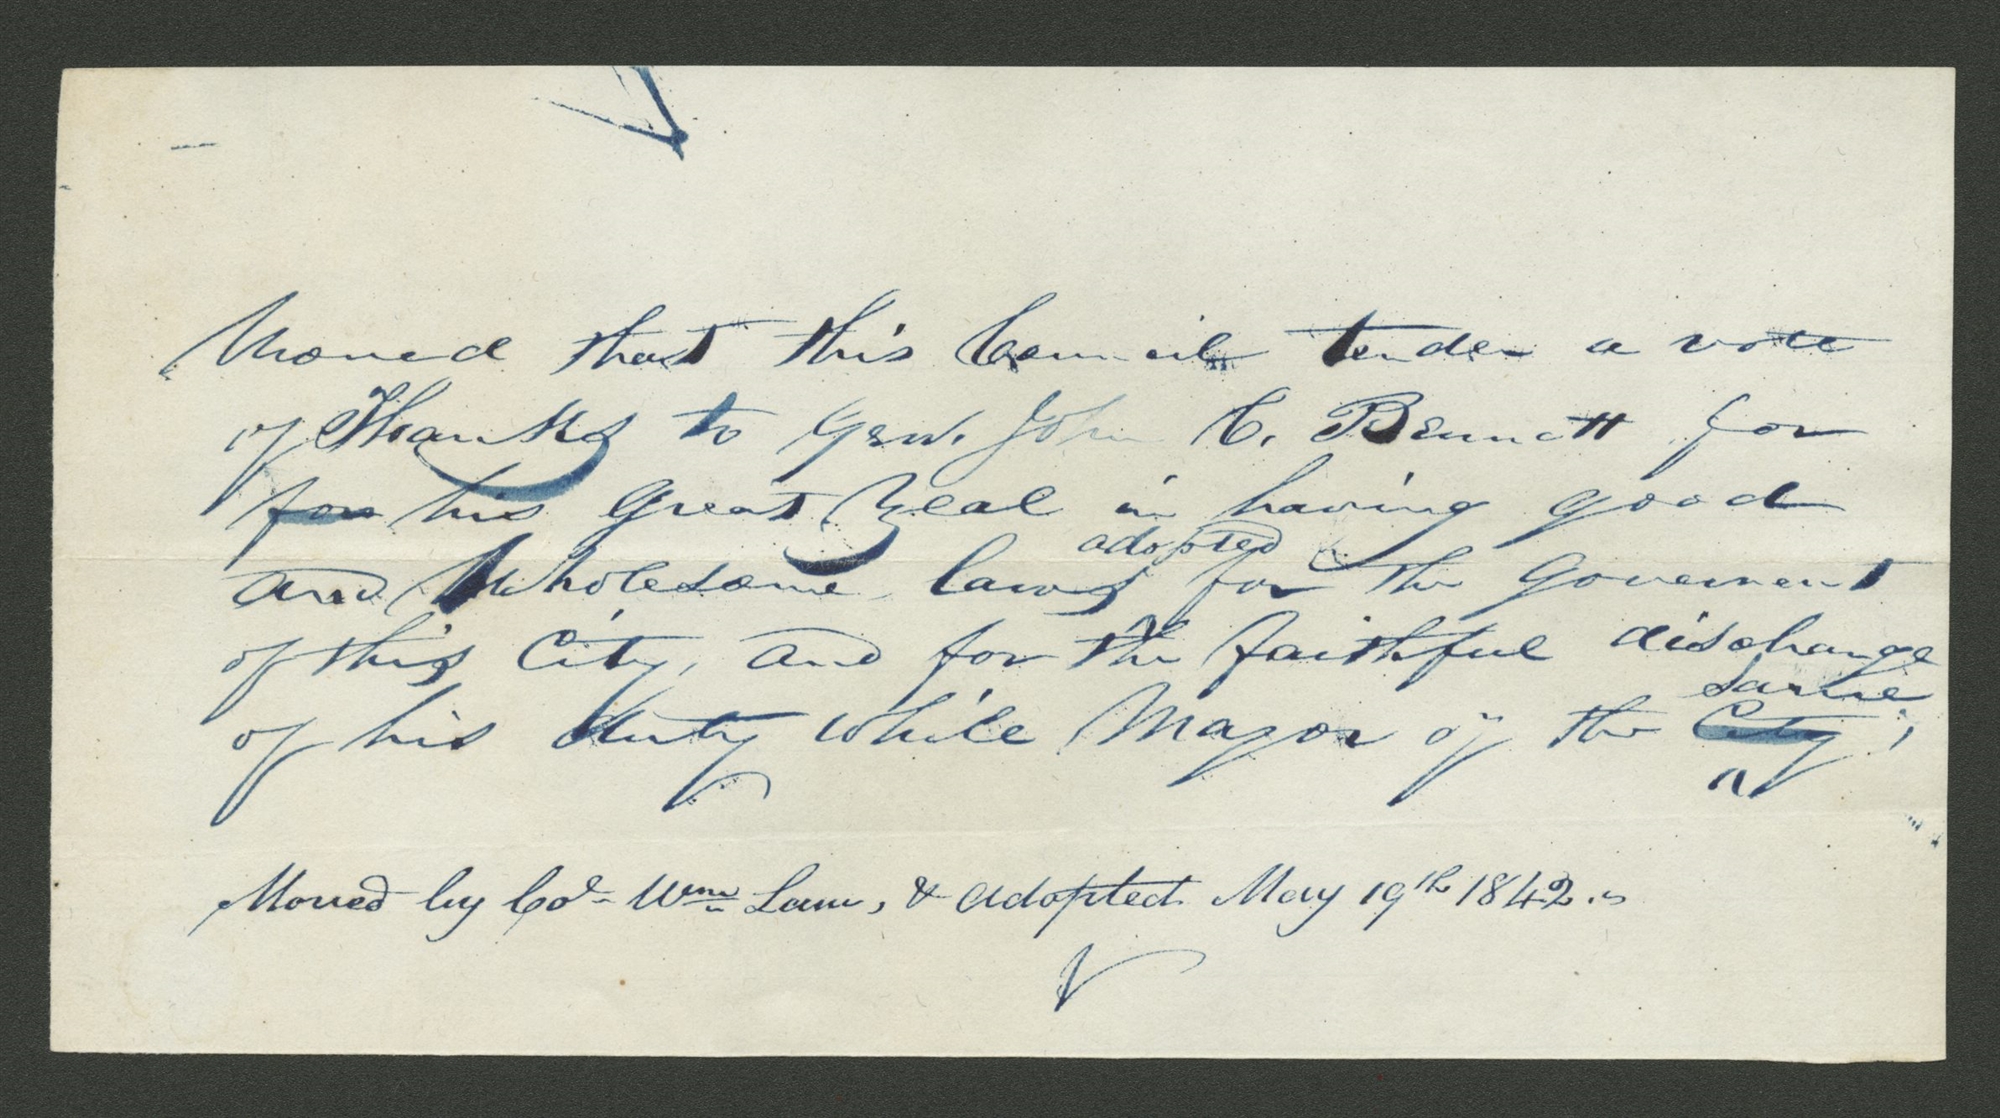 Moved that this Council tender a vote
of Thanks to Gen. John C. Bennett for
for his great Zeal in having good
adopted
and Wholesome laws for the Goverment
of this City, and for the faithful discharge
same
of his duty while Mayor of the City,
Moved by Col. Wm Law, & adopted May 19th 1842.